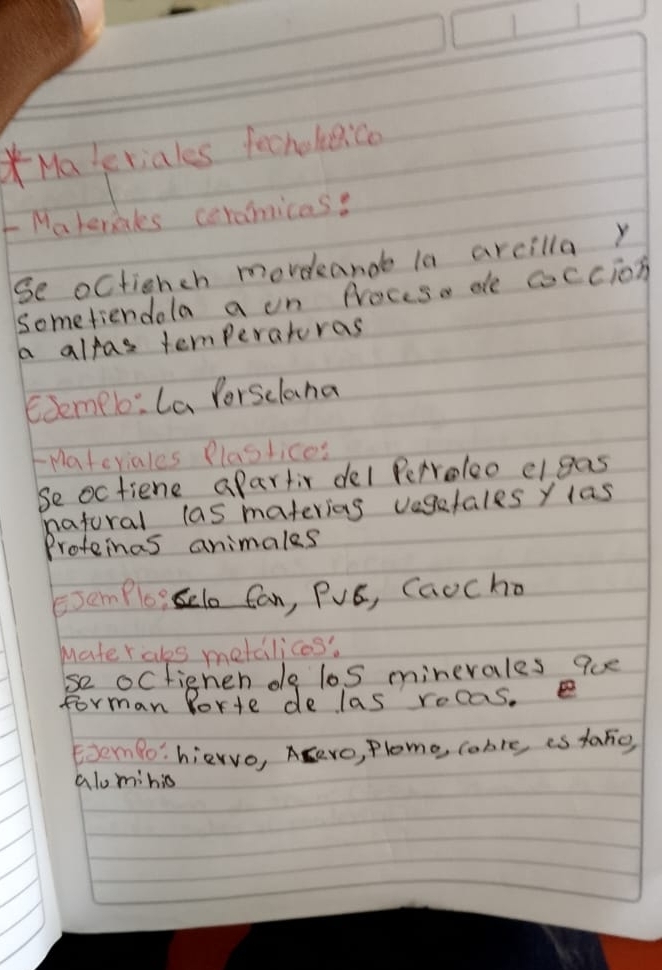 * Materiales technologico
- Materiales cerámicas:
Se octienen mordeando la arcilla y
sometiendola a un Proceso de cocción
a altas temperaturas
Ejemplo: La Porselana
- Materiales Plasticos
Se octiene apartir del Petroleo el gas
natural las materias vegetales y las
Proteinas animales
Ejemplo: selo fan, PVC, Caucho
Materiales metálicos:
se octienen de los minerales que
forman Porte de las rocas.
Ejemplo: hierro, Acero, Plomo, cobre, estaño,
aluminio